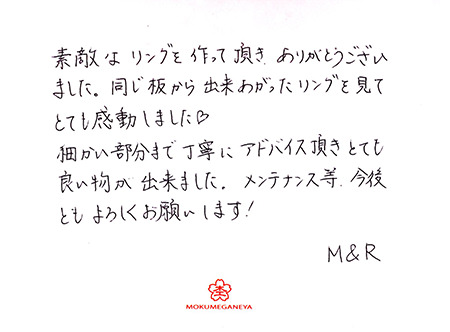 素敵な リングを 作って 頂き、ありがとうござい
ました。同じ板から 出来あがった リングを 見て
とても感動しました♡
細かい部分まで 丁寧に アドバイス頂き とても
良い物が 出来ました。メンテナンス等、今後
とも よろしくお願いします!
M&R
MOKUMEGANEYA